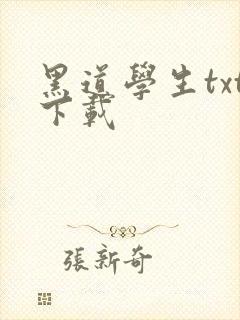 黑道學生txt
下載
張新奇